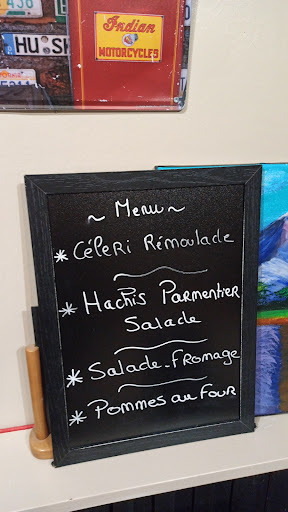 436
HU SK
Indian
MOTORCYCLES
~ Menu ~
* Céleri Rémoulade
* Hachis Parmentier
Salade
* Salade - Fromage
* Pommes au Four